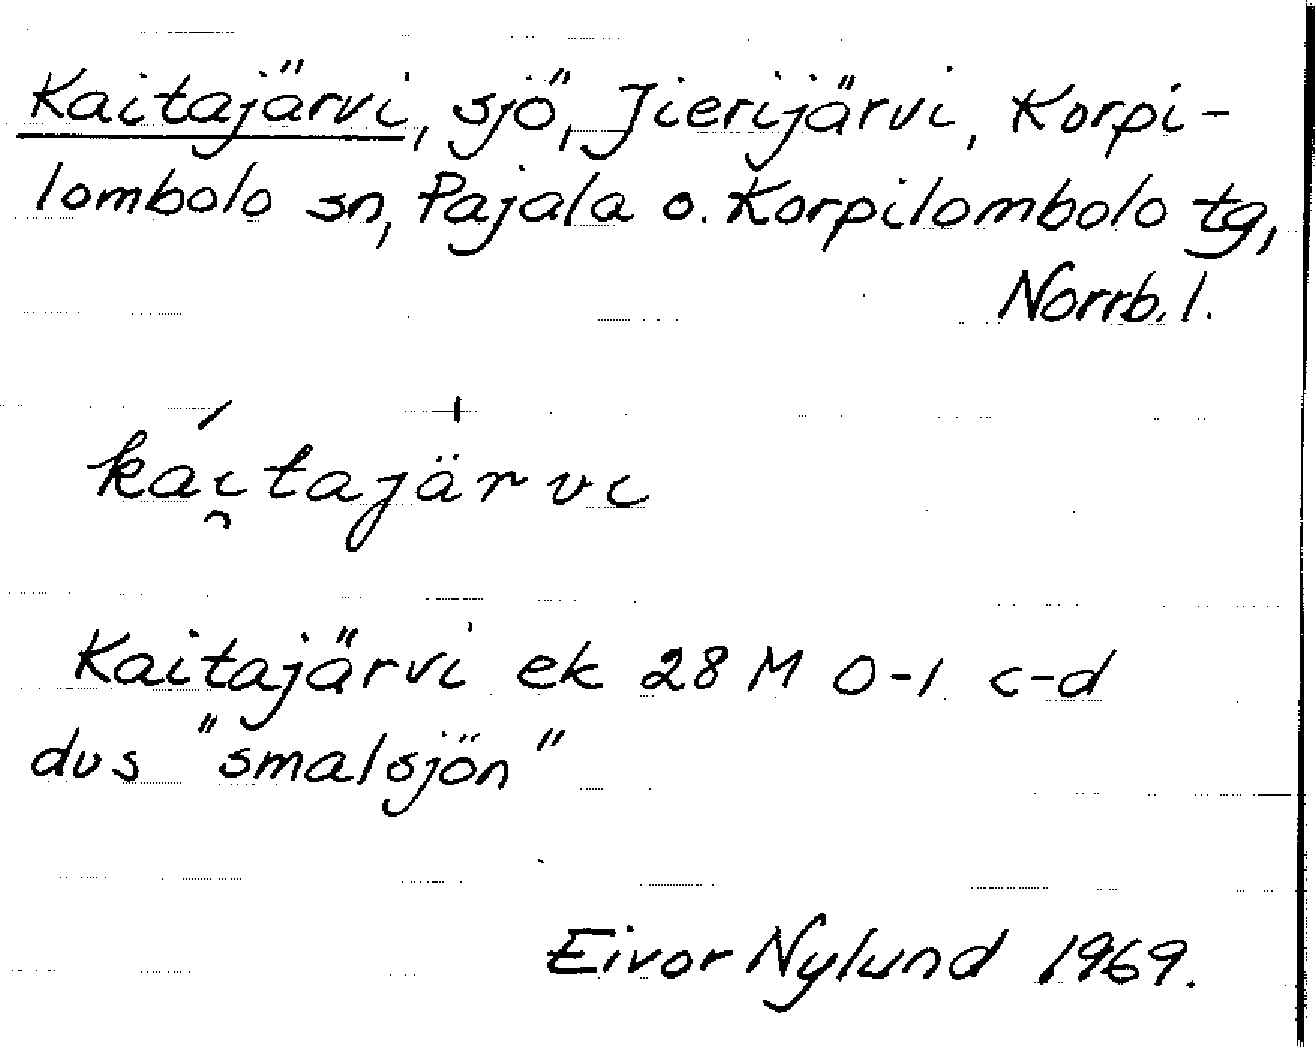 Kaitajärvi, sjö, Jierijärvi, Korpi-
lombolo sn, Pajala o. Korpilombolo tg,
Norrb. l.
kái̯tajärvi
Kaitajärvi ek 28 M 0-1 c-d
dvs "smalsjön"
Eivor Nylund 1969.